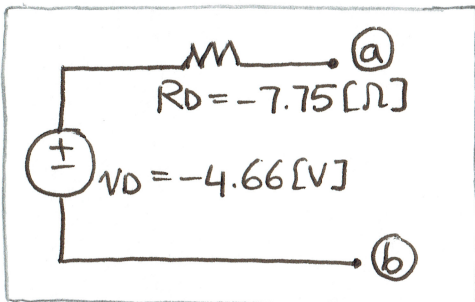 ⓐ
RD = -7.75[Ω]
±
VD = -4.66[V]
ⓑ